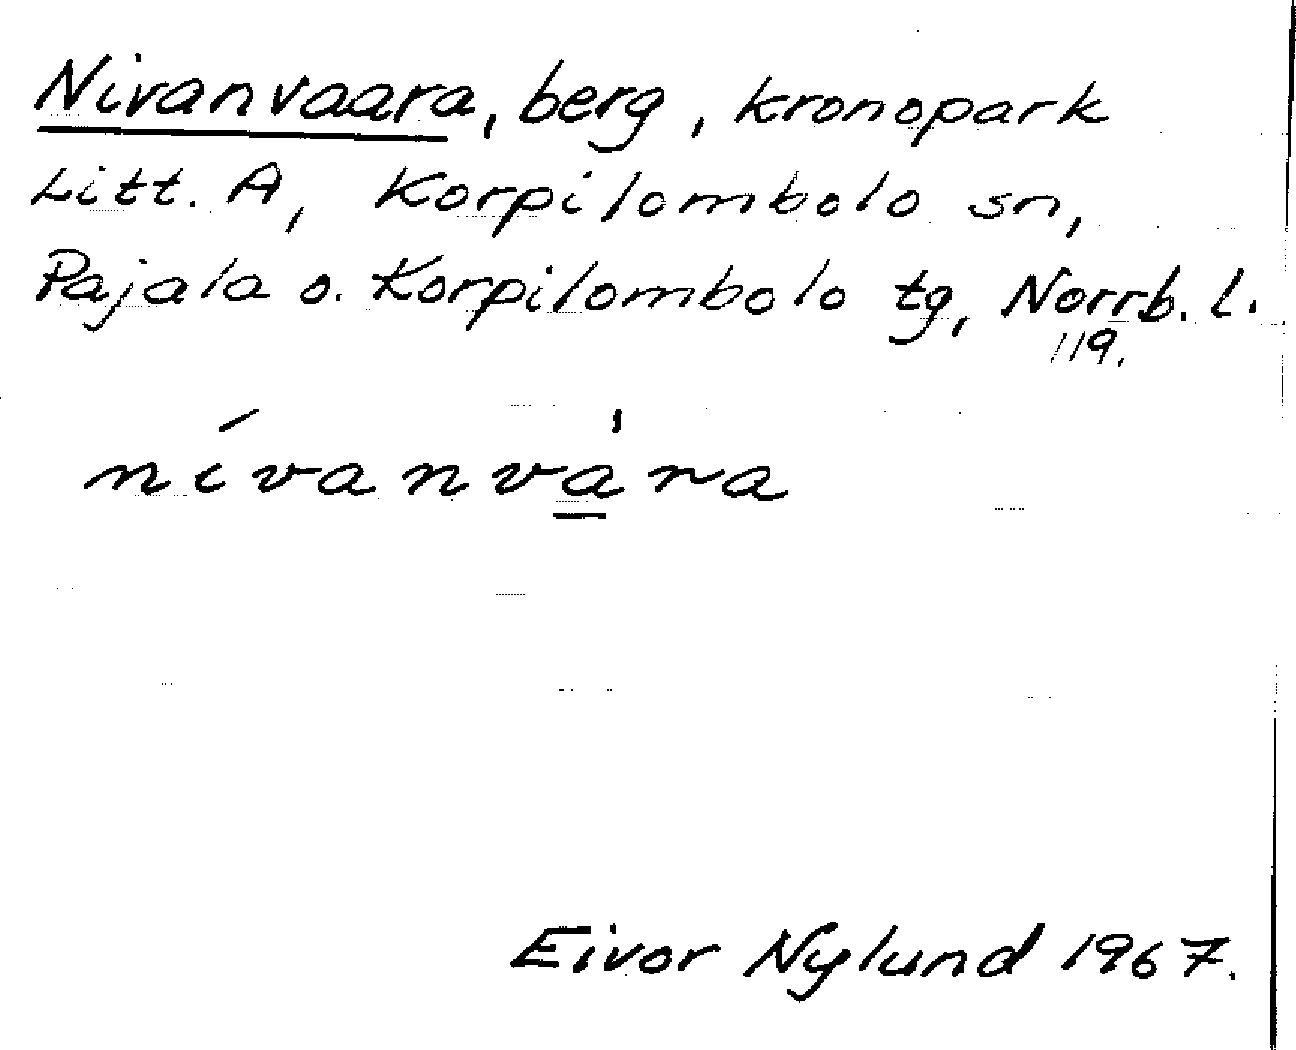 Nivanvaara, berg, kronopark
Litt. A, Korpilombolo sn,
Pajala o. Korpilombolo tg, Norrb. l.
119.
nívanva̲̍ra
Eivor Nylund 1967.